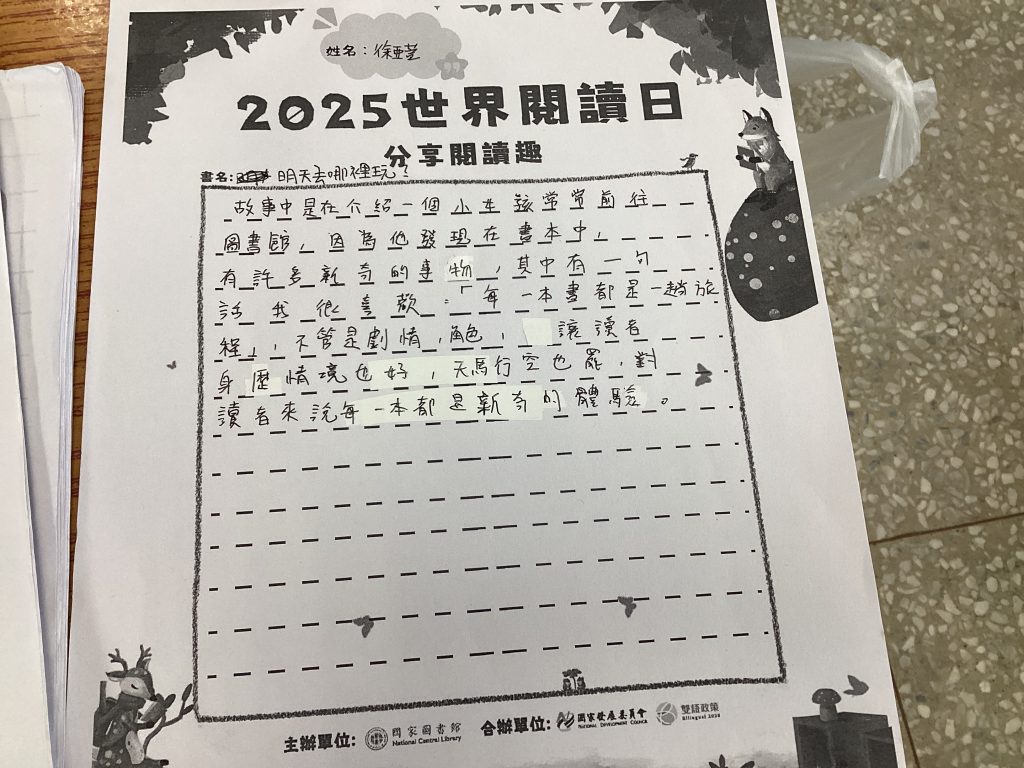 姓名：徐亞莹
2025世界閱讀日
分享閱讀趣
書名：明天去哪裡玩？
故事中是在介紹一個小女孩常常前往
圖書館，因為他發現在書本中，
有許多新奇的事物，其中有一句
話我很喜歡：「每一本書都是一趟旅
程」，不管是劇情，角色，讓讀者
身歷情境也好，天馬行空也罷，對
讀者來說每一本都是新奇的體驗。
主辦單位：國家圖書館 National Central Library 合辦單位：國家發展委員會 NATIONAL DEVELOPMENT COUNCIL 雙語政策 Bilingual 2030